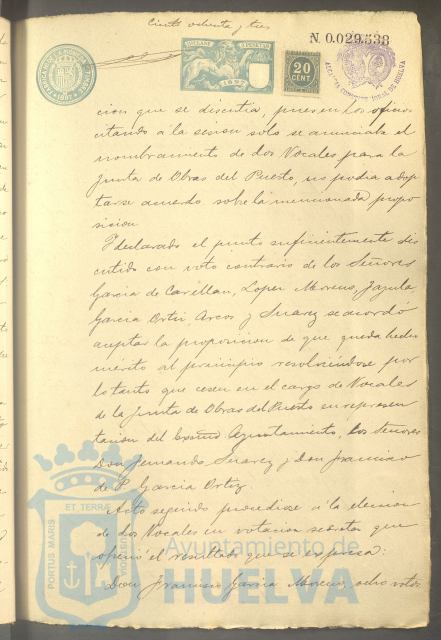 Ciento ochenta y tres
N. 0.029.538
1897
20
CENT
ALCALDIA CONSTITUCIONAL DE HUELVA
cion que se discutia, pues en los oficios
citando a la sesion solo se anunciaba el
nombramiento de dos Vocales para la
Junta de Obras del Puerto, no podia adop
tarse acuerdo sobre la mencionada propo
sicion.
Y declarado el punto suficientemente dis
cutido con voto contrario de los Señores
Garcia de Lopez Moreno,
Garcia Ortiz, Arcos y Suarez se acordó
aceptar la proposicion de que queda hecho
mérito al principio resolviendose por
lo tanto que cesen en el cargo de Vocales
de la Junta de Obras del Puerto en represen
tacion del Excmo Ayuntamiento, los Señores
Don Fernando Suarez y don Francisco
de P. Garcia Ortiz.
Acto seguido procediose a la eleccion
de dos Vocales en votacion secreta que
el resultado que se expresa:
Don Francisco Garcia Moreno, ocho votos
PORTUS MARIS
ET TERRÆ
CUSTODIA
Ayuntamiento de
HUELVA